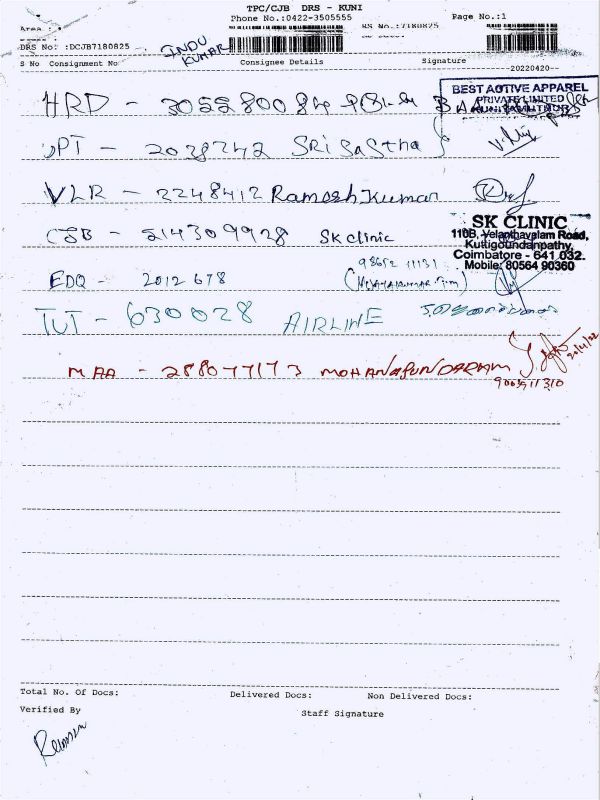 TPC/CJB DRS - KUNI
Phone No.:0422-3505555 Page No.:1
Area : RS No.:7180825
DRS No: :DCJB7180825 INDU
KUMAR
S No Consignment No Consignee Details Signature
--20220420--
BEST ACTIVE APPAREL
PRIVATE LIMITED
KUNIYAMUTHUR
HRD -
UPT - 2028242 Sri Sastha
VLR - 2248412 Ramesh Kumar
SK CLINIC
110B, Velanthavalam Road,
CJB - 214309928 SK clinic
Kuttigoundanpathy,
Coimbatore - 641 032.
Mobile: 80564 90360
98652 11131
EDQ - 2012678 (VIJAYAKUMAR.T.M)
TUT - 630028 AIRLINE
MAA - 288077173 MOHANASUNDARAM 20/4/22
Total No. Of Docs: Delivered Docs: Non Delivered Docs:
Verified By Staff Signature